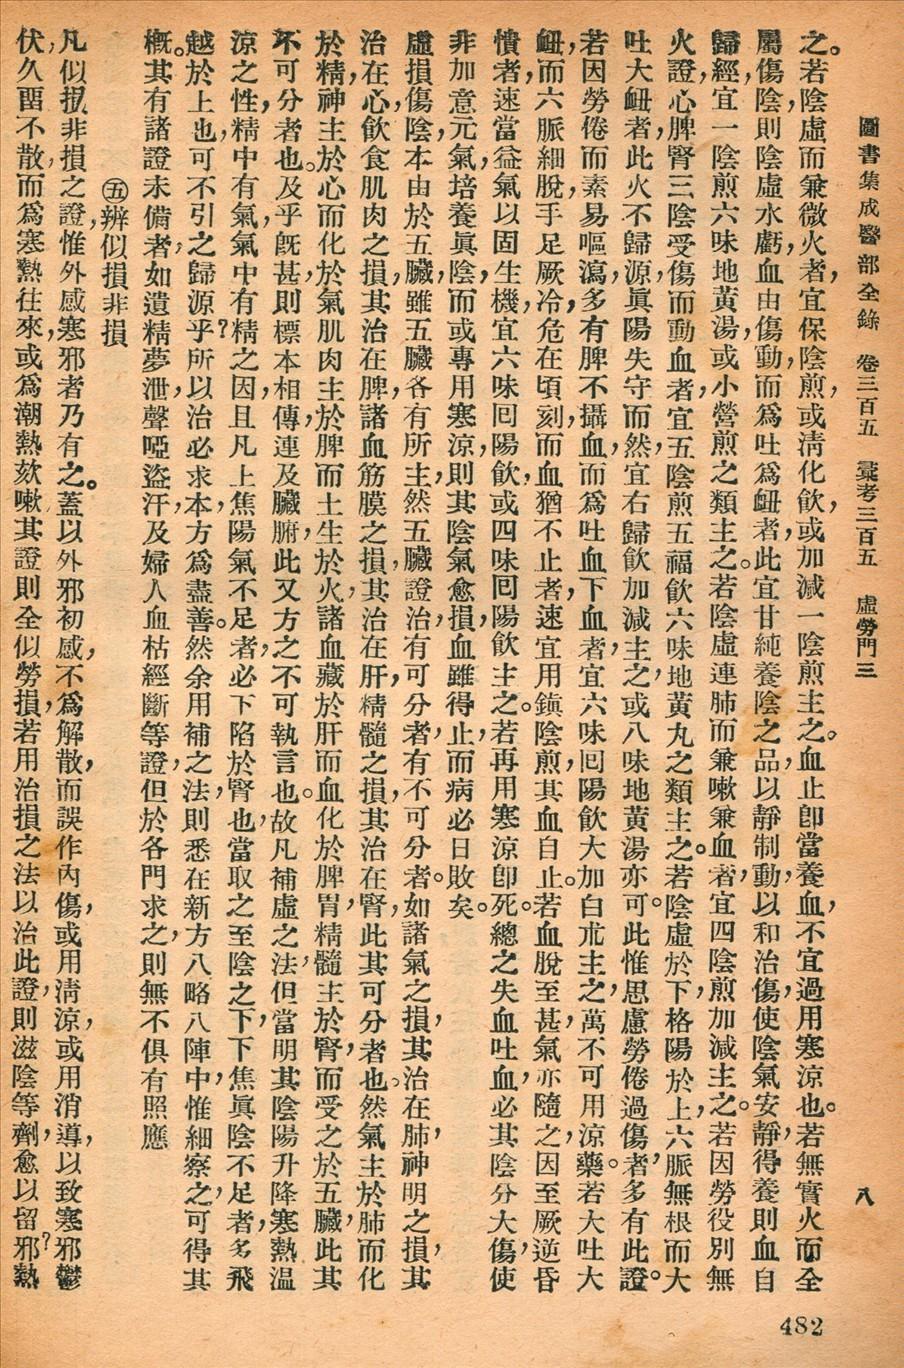 圖書集成醫部全錄　卷三百五　彙考三百五　虛勞門三
八
之。若陰虛而兼微火者，宜保陰煎，或清化飲，或加減一陰煎主之。血止卽當養血，不宜過用寒涼也。若無實火而全
屬傷陰，則陰虛水虧，血由傷動，而爲吐爲衄者，此宜甘純養陰之品，以靜制動，以和治傷，使陰氣安靜，得養則血自
歸經，宜一陰煎六味地黃湯，或小營煎之類主之。若陰虛連肺而兼嗽兼血者，宜四陰煎加減主之。若因勞役別無
火證，心脾腎三陰受傷而動血者，宜五陰煎五福飲六味地黃丸之類主之。若陰虛於下，格陽於上，六脈無根而大
吐大衄者，此火不歸源，眞陽失守而然，宜右歸飲加減主之，或八味地黃湯亦可。此惟思慮勞倦過傷者，多有此證。
若因勞倦而素易嘔瀉，多有脾不攝血，而爲吐血下血者，宜六味囘陽飲大加白朮主之，萬不可用涼藥。若大吐大
衄，而六脈細脫，手足厥冷，危在頃刻，而血猶不止者，速宜用鎭陰煎，其血自止。若血脫至甚，氣亦隨之，因至厥逆昏
憒者，速當益氣以固生機，宜六味囘陽飲，或四味囘陽飲主之。若再用寒涼卽死。總之失血吐血，必其陰分大傷，使
非加意元氣，培養眞陰，而或專用寒涼，則其陰氣愈損，血雖得止，而病必日敗矣。
虛損傷陰，本由於五臟，雖五臟各有所主，然五臟證治，有可分者，有不可分者。如諸氣之損，其治在肺，神明之損，其
治在心，飲食肌肉之損，其治在脾，諸血筋膜之損，其治在肝，精髓之損，其治在腎，此其可分者也。然氣主於肺而化
於精，神主於心而化於氣，肌肉主於脾而土生於火，諸血藏於肝而血化於脾胃，精髓主於腎，而受之於五臟，此其
不可分者也。及乎旣甚，則標本相傳，連及臟腑，此又方之不可執言也。故凡補虛之法，但當明其陰陽升降寒熱溫
涼之性，精中有氣，氣中有精之因，且凡上焦陽氣不足者，必下陷於腎也，當取之至陰之下，下焦眞陰不足者，多飛
越於上也，可不引之歸源乎？所以治必求本，方爲盡善。然余用補之法，則悉在新方八略八陣中，惟細察之，可得其
槪。其有諸證未備者，如遺精夢泄，聲啞盜汗，及婦人血枯經斷等證，但於各門求之，則無不俱有照應
㊄辨似損非損
凡似損非損之證，惟外感寒邪者乃有之。蓋以外邪初感，不爲解散，而誤作內傷，或用淸涼，或用消導，以致寒邪鬱
伏，久畱不散，而爲寒熱往來，或爲潮熱欬嗽，其證則全似勞損，若用治損之法以治此證，則滋陰等劑，愈以留邪？熱
482